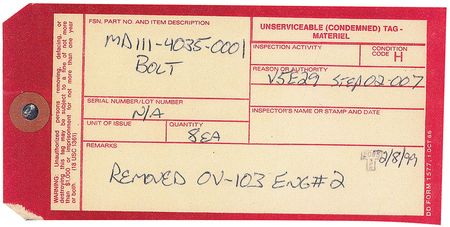 FSN, PART NO. AND ITEM DESCRIPTION
MD111-4035-0001
BOLT
UNSERVICEABLE (CONDEMNED) TAG - MATERIEL
INSPECTION ACTIVITY
CONDITION CODE
H
REASON OR AUTHORITY
V5E29
SERIAL NUMBER/LOT NUMBER
N/A
INSPECTOR'S NAME OR STAMP AND DATE
UNIT OF ISSUE
QUANTITY
8EA
REMARKS
2/8/99
REMOVED OV-103 ENG#2
WARNING: Unauthorized persons removing, defacing, or
destroying this tag may be subject to a fine of not more
than $1,000 or imprisonment for not more than one year
or both. (18 USC 1361)
DD FORM 1577, 1 OCT 66